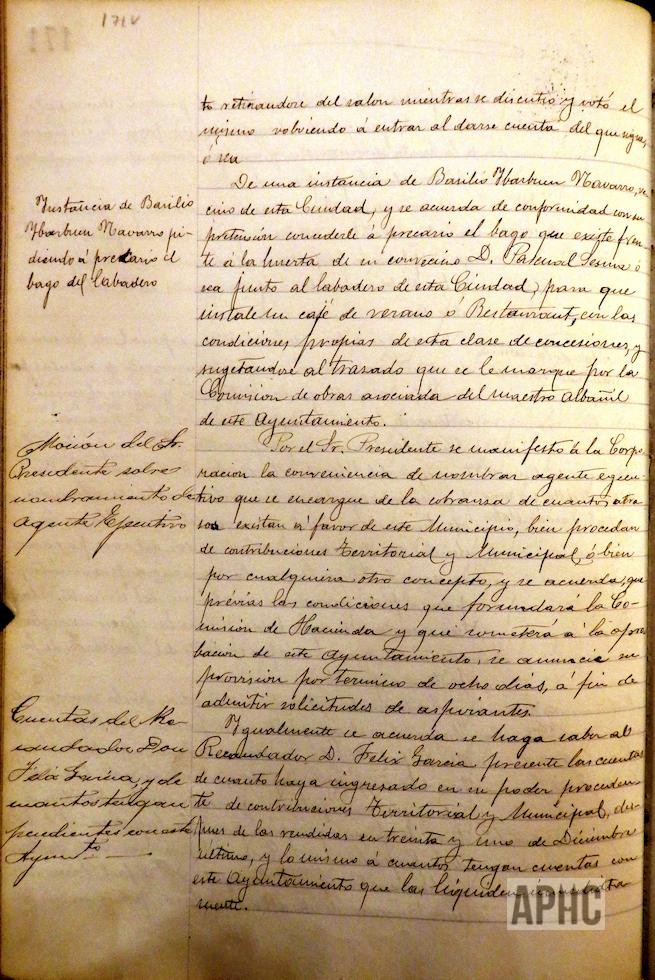 171v
171
to retirandose del salon mientras se discutió y votó el
mismo volviendo á entrar al darse cuenta del que sigue,
ó sea
Instancia de Basilio
Ybarbuen Navarro pi-
diendo á precario el
bago del labadero
De una instancia de Basilio Ybarbuen Navarro, ve-
cino de esta Ciudad, y se acuerda de conformidad con su
pretensión concederle á precario el bago que existe fren-
te á la huerta de su convecino D. Pascual ó
sea junto al labadero de esta Ciudad, para que
instale un café de verano ó Restaurant, con las
condiciones propias de esta clase de concesiones, y
sugetandose al trasado que se le marque por la
Comision de obras asociada del maestro Albañil
de este Ayuntamiento.
Moción del Sr.
Presidente sobre
nombramiento de
agente Ejecutivo
Por el Sr. Presidente se manifestó á la Corpo-
racion la conveniencia de nombrar agente egecu-
tivo que se encargue de la cobransa de cuantos atra-
sos existan á favor de este Municipio, bien procedan
de contribuciones Territorial y Municipal, ó bien
por cualquiera otro concepto, y se acuerda, que
prévias las condiciones que formulará la Co-
mision de Hacienda y que someterá á la apro-
bacion de este Ayuntamiento, se anuncie su
provision por termino de ocho dias, á fin de
admitir solicitudes de aspirantes.
Cuentas del Re-
caudador Don
Felix Garcia, y de
cuantos tengan
pendientes con este
Ayunto
Ygualmente se acuerda se haga saber al
Recaudador D. Felix Garcia presente las cuentas
de cuanto haya ingresado en su poder proceden-
te de contribuciones Territorial y Municipal, des-
pues de las rendidas en treinta y uno de Diciembre
ultimo, y lo mismo á cuantos tengan cuentas con
este Ayuntamiento que las liquiden inmediata-
mente.
APHC